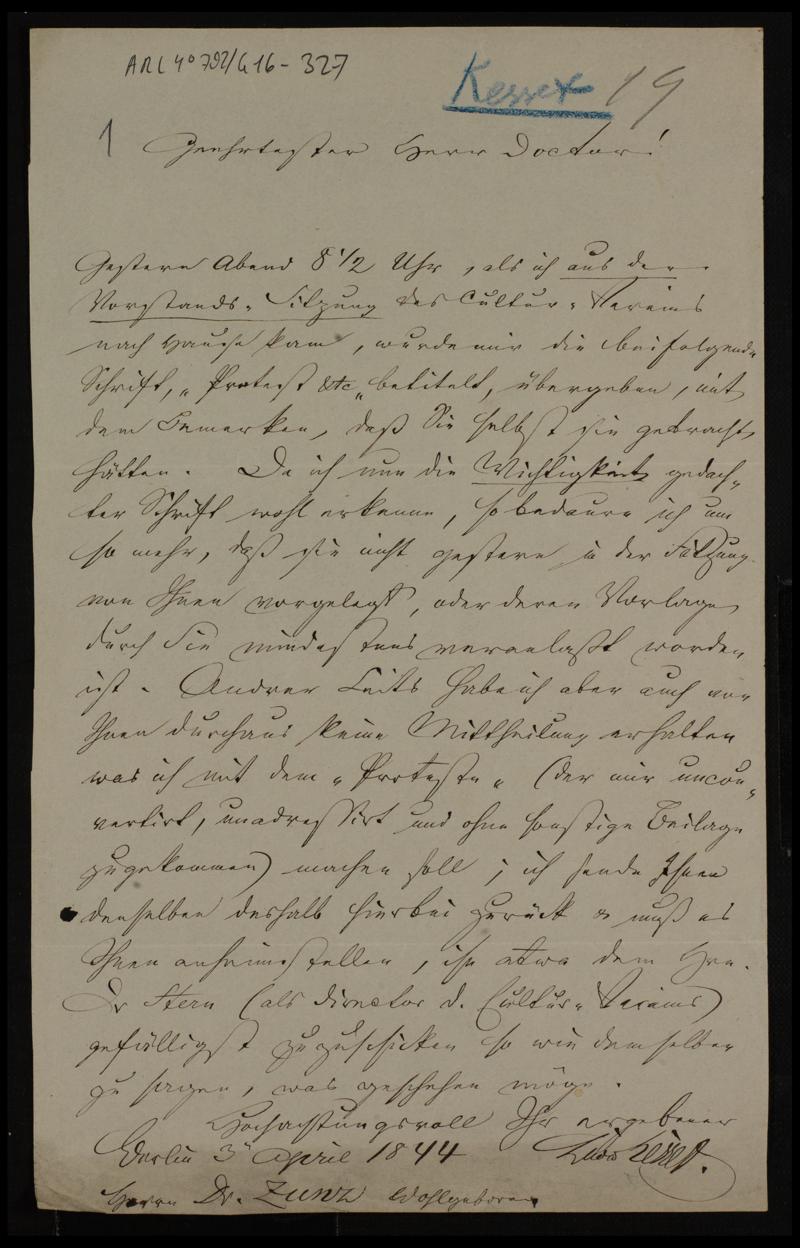 ARC 4° 792/G16-327
19
1
Geehrtester Herr Doctor!
Gestern Abend 8 1/2 Uhr, als ich aus der
Vorstands-Sitzung des Cultur-Vereins
nach Hause kam, wurde mir die beifolgende
Schrift, „Protest etc“ betitelt, übergeben, mit
dem Bemerken, daß Sie selbst sie gebracht
hätten. Da ich nun die Wichtigkeit gedach-
ter Schrift wohl erkenne, so bedaure ich um
so mehr, daß sie nicht gestern in der Sitzung
von Ihnen vorgelegt, oder deren Vorlage
durch Sie mindestens veranlaßt worden
ist. Andrer Seits habe ich aber auch von
Ihnen durchaus keine Mittheilung erhalten
was ich mit dem „Proteste“ (der mir uncou-
vertirt, unadressirt und ohne sonstige Beilage
zugekommen) machen soll; ich sende Ihnen
denselben deshalb hierbei zurück & muß es
Ihnen anheimstellen, ihn etwa dem Hrn.
Dr Stern (als Director d. Cultur-Vereins)
gefälligst zuzuschicken so wie demselben
zu sagen, was geschehen möge.
Hochachtungsvoll Ihr ergebener
Berlin 3 April 1844
Herrn Dr. Zunz Wohlgeboren